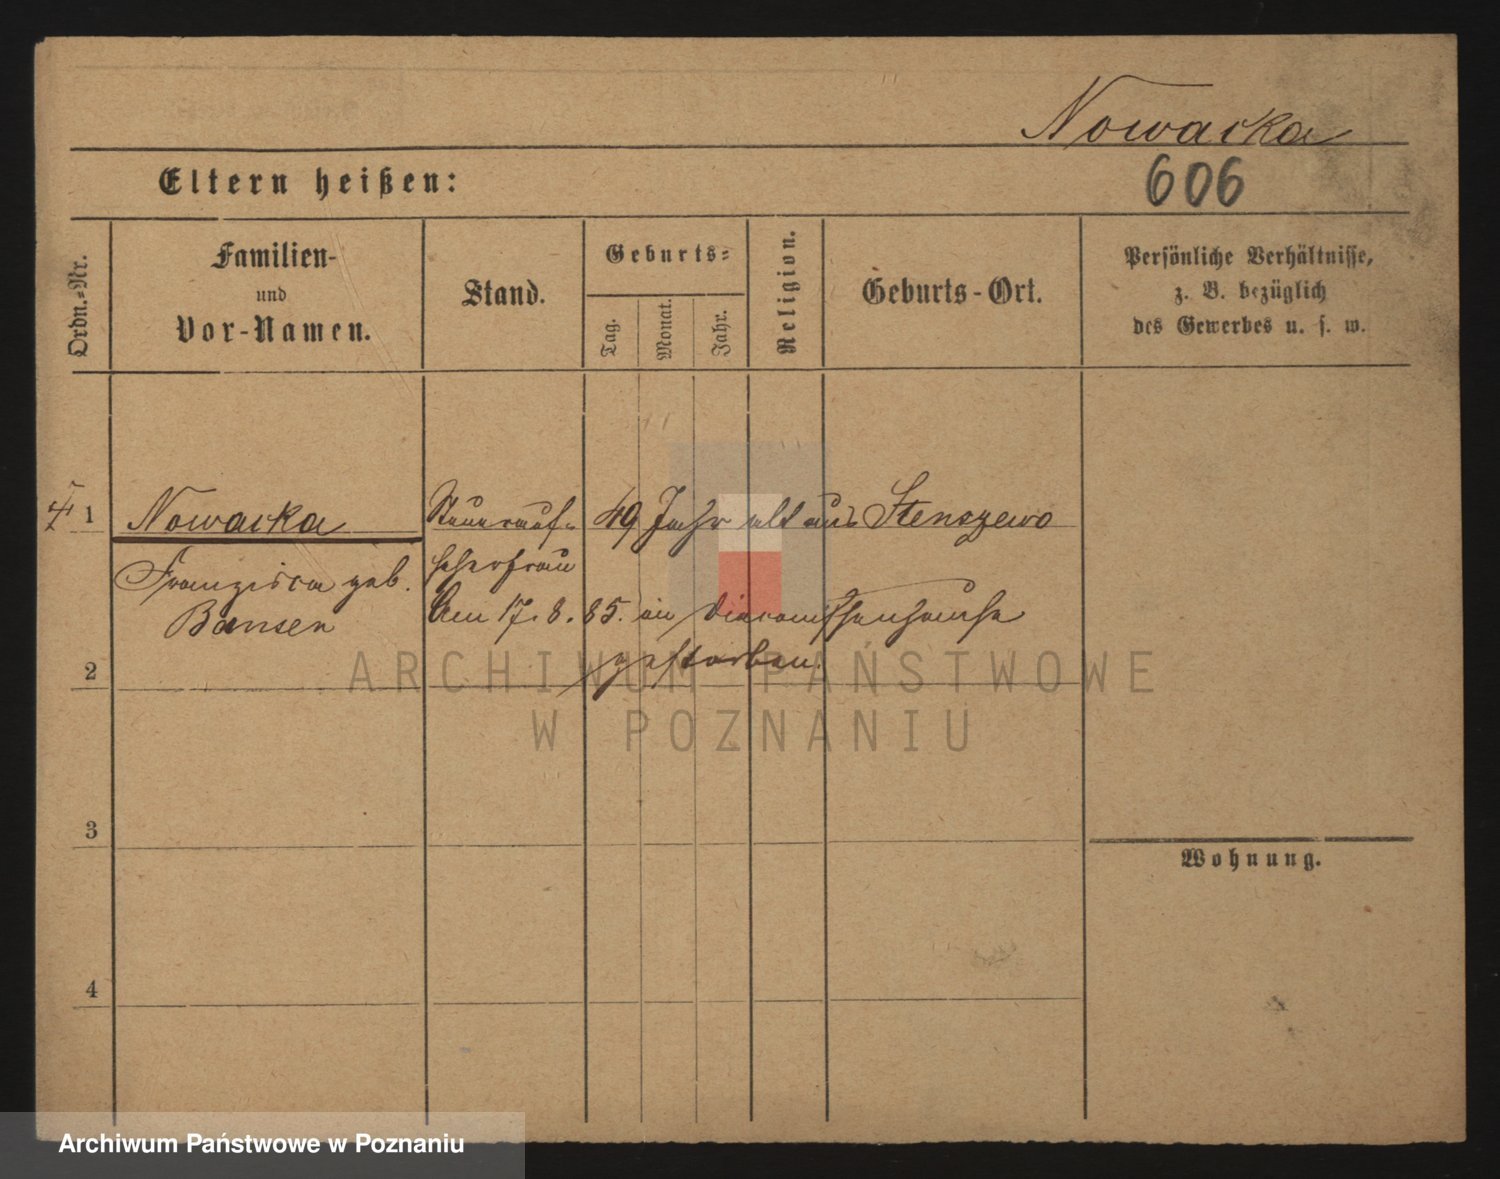 Nowacka
Eltern heißen:
606
Ordn.-Nr.
Familien-
und
Vor-Namen.
Stand.
Geburts-
Tag.
Monat.
Jahr.
Religion.
Geburts-Ort.
Persönliche Verhältnisse,
z. B. bezüglich
des Gewerbes u. s. w.
1 Nowacka Steuerauf- 49 Jahr alt aus Stenszewo
Franzisca geb. seherfrau
Bansen Am 17.8.85. im Diaconissenhause
gestorben.
2
3
4
Wohnung.
ARCHIWUM PAŃSTWOWE
W POZNANIU
Archiwum Państwowe w Poznaniu